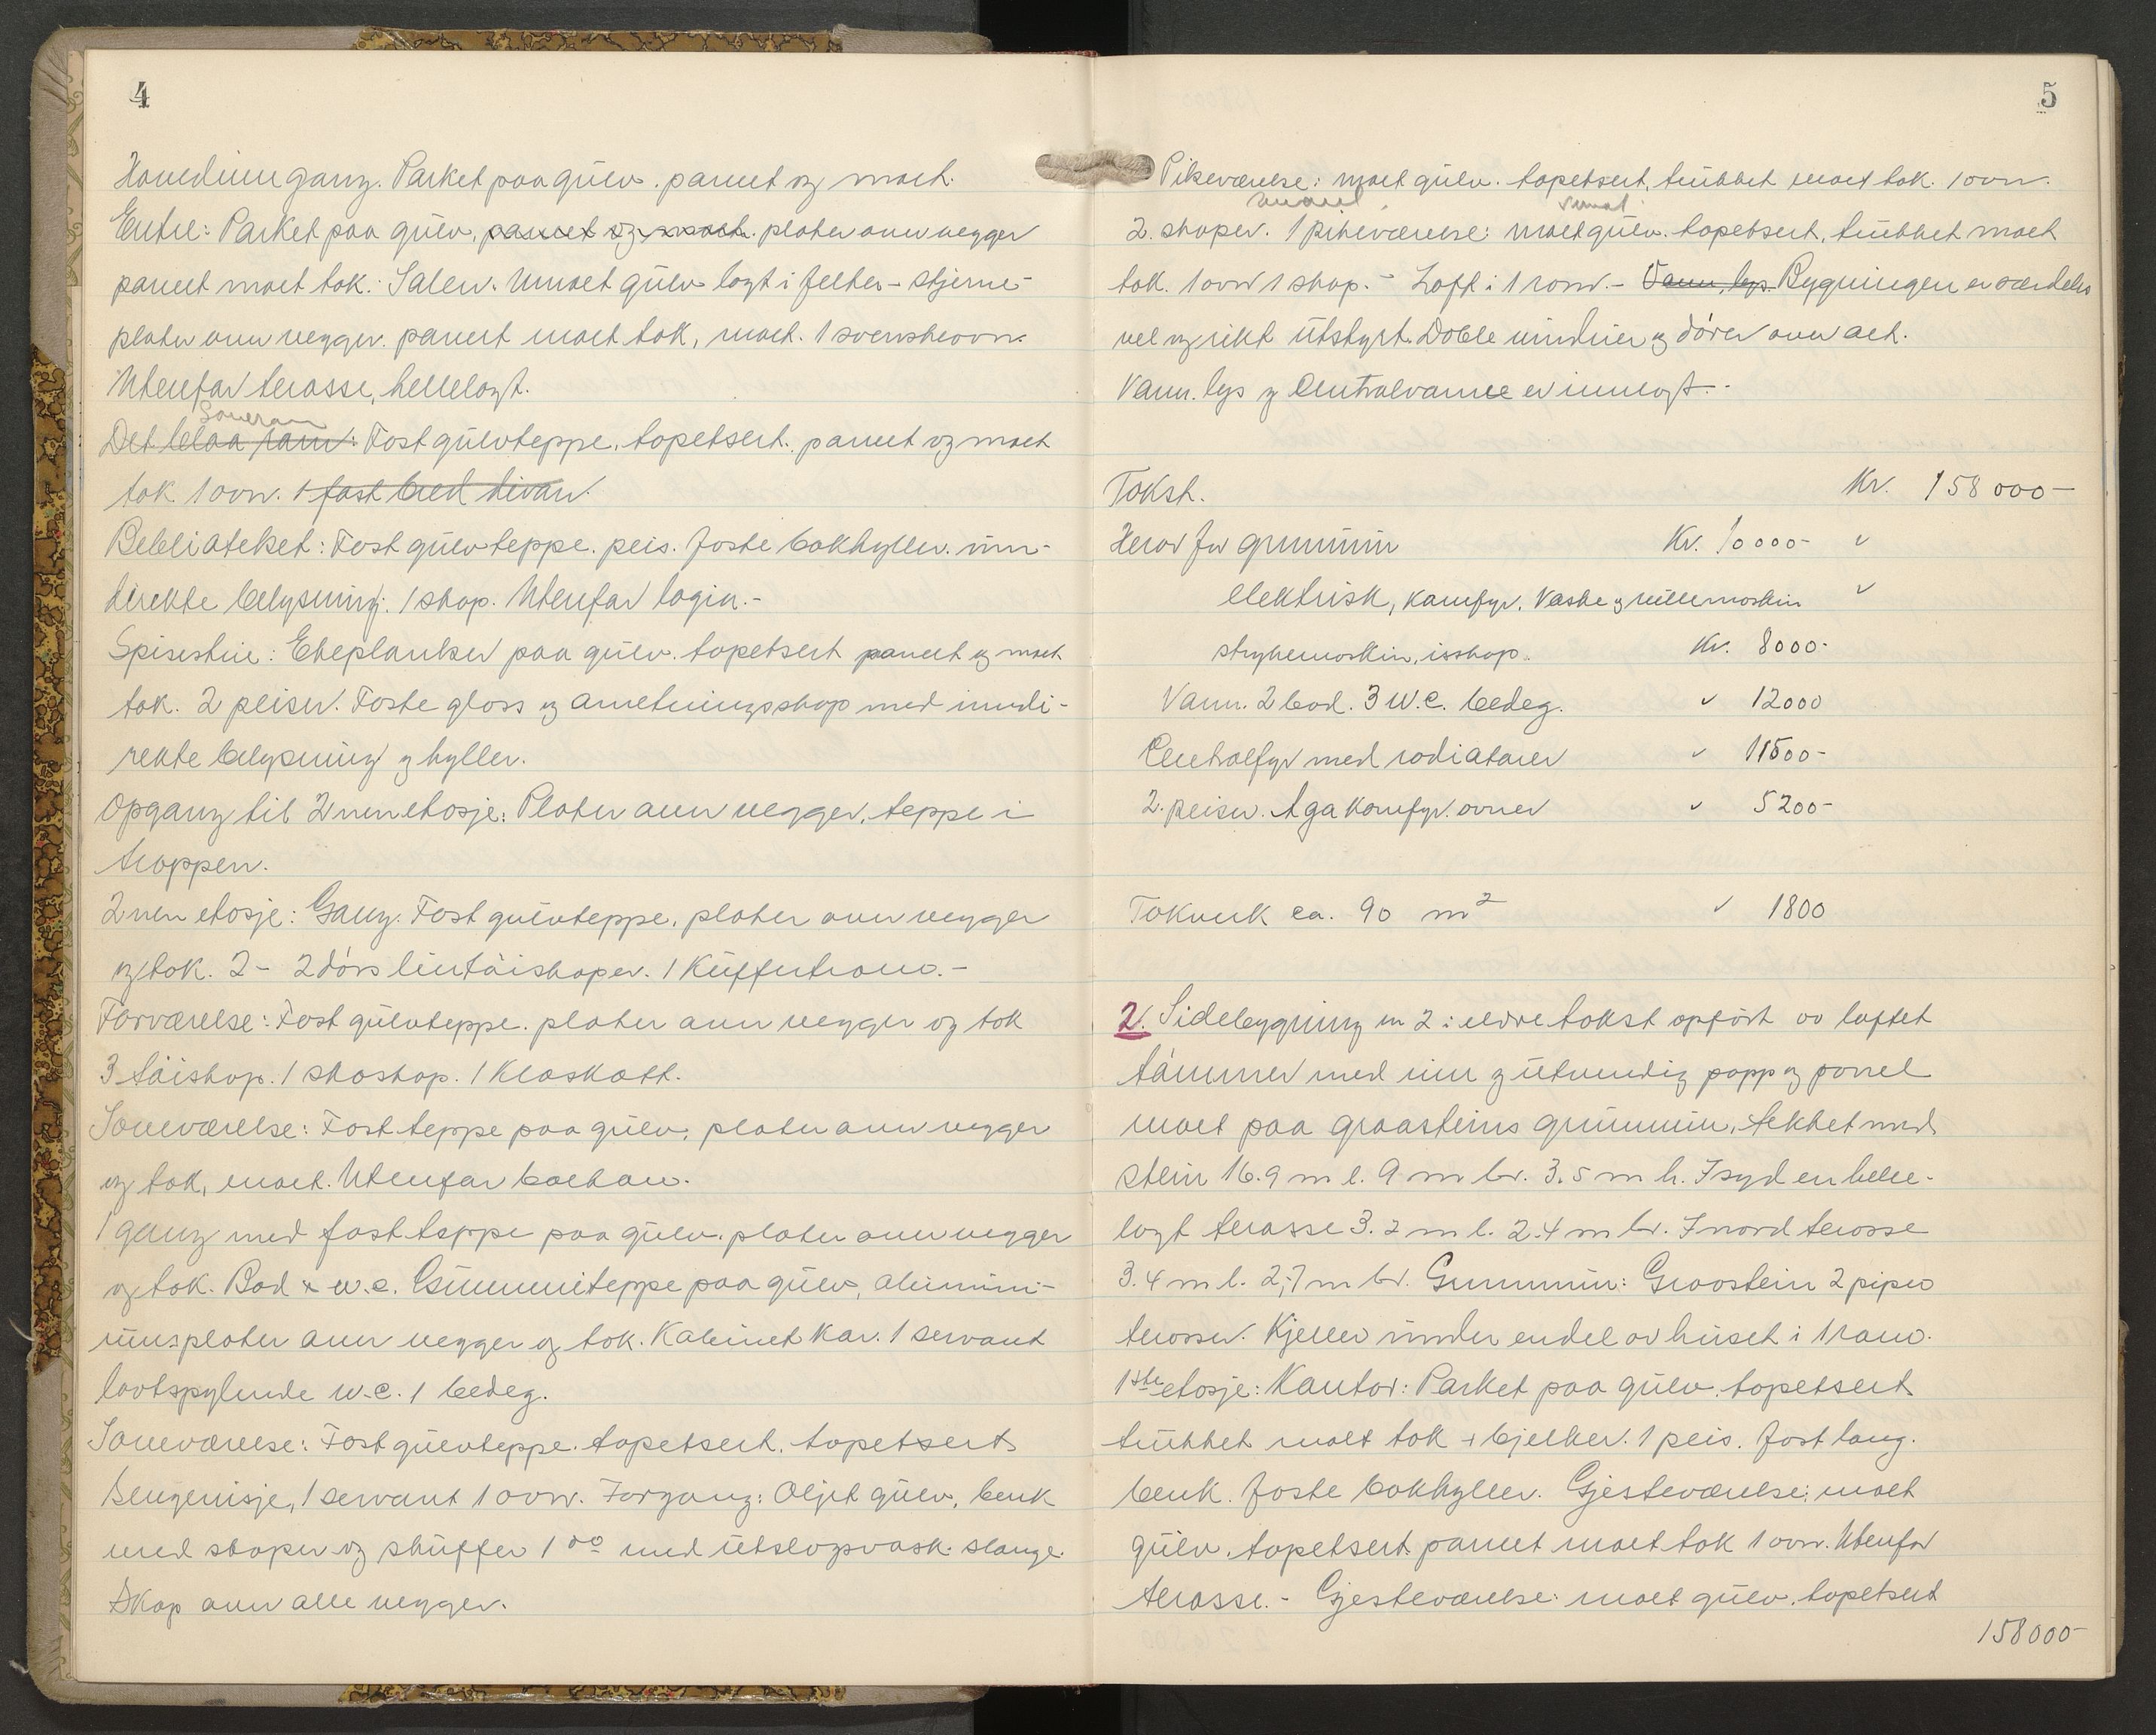 4
Hovedinngang. Parket paa gulv. panelt og malt.
Entre: Parket paa gulv, panelt og malt. plater ann vegger
panelt malt tak. Salen. Umalt gulv lagt i felter - stjerne-
plater ann vegger. panelt malt tak, malt. 1 svenskeovn.
Utenfor terasse, hellelagt.
Soverom
Det blaa rom: Fast gulvteppe, tapetsert. panelt og malt
tak 1 ovn. 1 fast bred divan.
Bebliateket: Fast gulvteppe. peis. faste bokhyller. inn-
direkte belysning. 1 skap. Utenfor logia.-
Spisestue: Ekeplanker paa gulv. tapetsert panelt og malt
tak. 2 peiser. Faste glass og anretningsskap med inndi-
rekte belysning og hyller.
Opgang til 2nen etasje: Plater ann vegger, teppe i
trappen.
2nen etasje: Gang. Fast gulvteppe. plater ann vegger
og tak. 2 - 2dörs lintöiskaper. 1 Kuffertrom.-
Forværelse: Fast gulvteppe. plater ann vegger og tak
3 töiskap. 1 skoskap. 1 Kloskott.
Soveværelse: Fast teppe paa gulv. plater ann vegger
og tak, malt. Utenfor balkon.
1 gang med fast teppe paa gulv. plater ann vegger
og tak. Bad + w.c. Gummiteppe paa gulv, alumini-
umsplater ann vegger og tak. Kabinet Kar. 1 servant
lavtspylende w.c. 1 bedeg.
Soveværelse: Fast gulvteppe. tapetsert. tapetsert
Sengenisje, 1 servant 1 ovn. Forgang: Oljet gulv, benk
med skaper og skuffer 1 do med utslagsvask. slange.
Skap ann alle vegger.
5
Pikeværelse: malt gulv. tapetsert, trukket malt tak. 1 ovn.
2. skaper. 1 pikeværelse: malt gulv. tapetsert, trukket malt
tak. 1 ovn 1 skap. - Loft i 1 rom. - Vann, lys. Bygningen er særdeles
vel og rikt utstyrt. Doble vinduer og dörer over alt.
Vann. lys og Centralvarme er innlagt.-
Takst. Kr. 158000-
Herav for grunnmur Kr. 10000- "
elektrisk, Komfyr, Vaske og rullemaskin "
strykemaskin, isskap. Kr. 8000-
Vann. 2 bad. 3 W.C. bedeg. " 12000
Centralfyr med radiatorer " 11500-
2. peiser. Aga Komfyr. ovner " 5200-
Takverk ca. 90 m² " 1800
2. Sidebygning nr 2 i eldre takst opfört av laftet
tömmer med inn og utvendig papp og panel
malt paa graasteins grunnmur, tekket med
stein 16.9 m l. 9 m br. 3.5 m h. I syd en helle-
lagt terasse 3.2 m l. 2.4 m br. I nord terasse
3.4 m l. 2,7 m br. Grunnmur: Graastein 2 piper
terasser. Kjeller under endel av huset i 1 rom.
1ste etasje: Kontor: Parket paa gulv. tapetsert
trukket malt tak + bjelker. 1 peis. Fast lang.
benk. Faste bokhyller. Gjesteværelse: malt
gulv. tapetsert. panelt malt tak 1 ovn. Utenfor
terasse.- Gjesteværelse: malt gulv. tapetsert
158000-